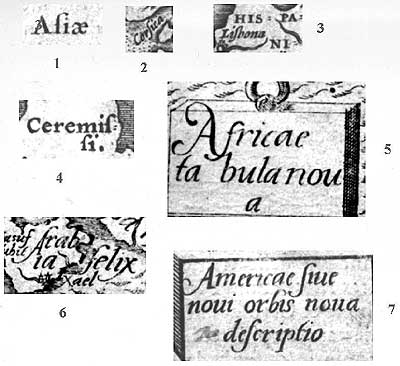 Aſiæ
1
Corſica
2
HIS : PA
Liſbona
NI
3
Ceremiſ-
ſi.
4
Africae
ta bula nou
a
5
ia felix
xael
6
Americae ſiue
noui orbis noua
deſcriptio
7